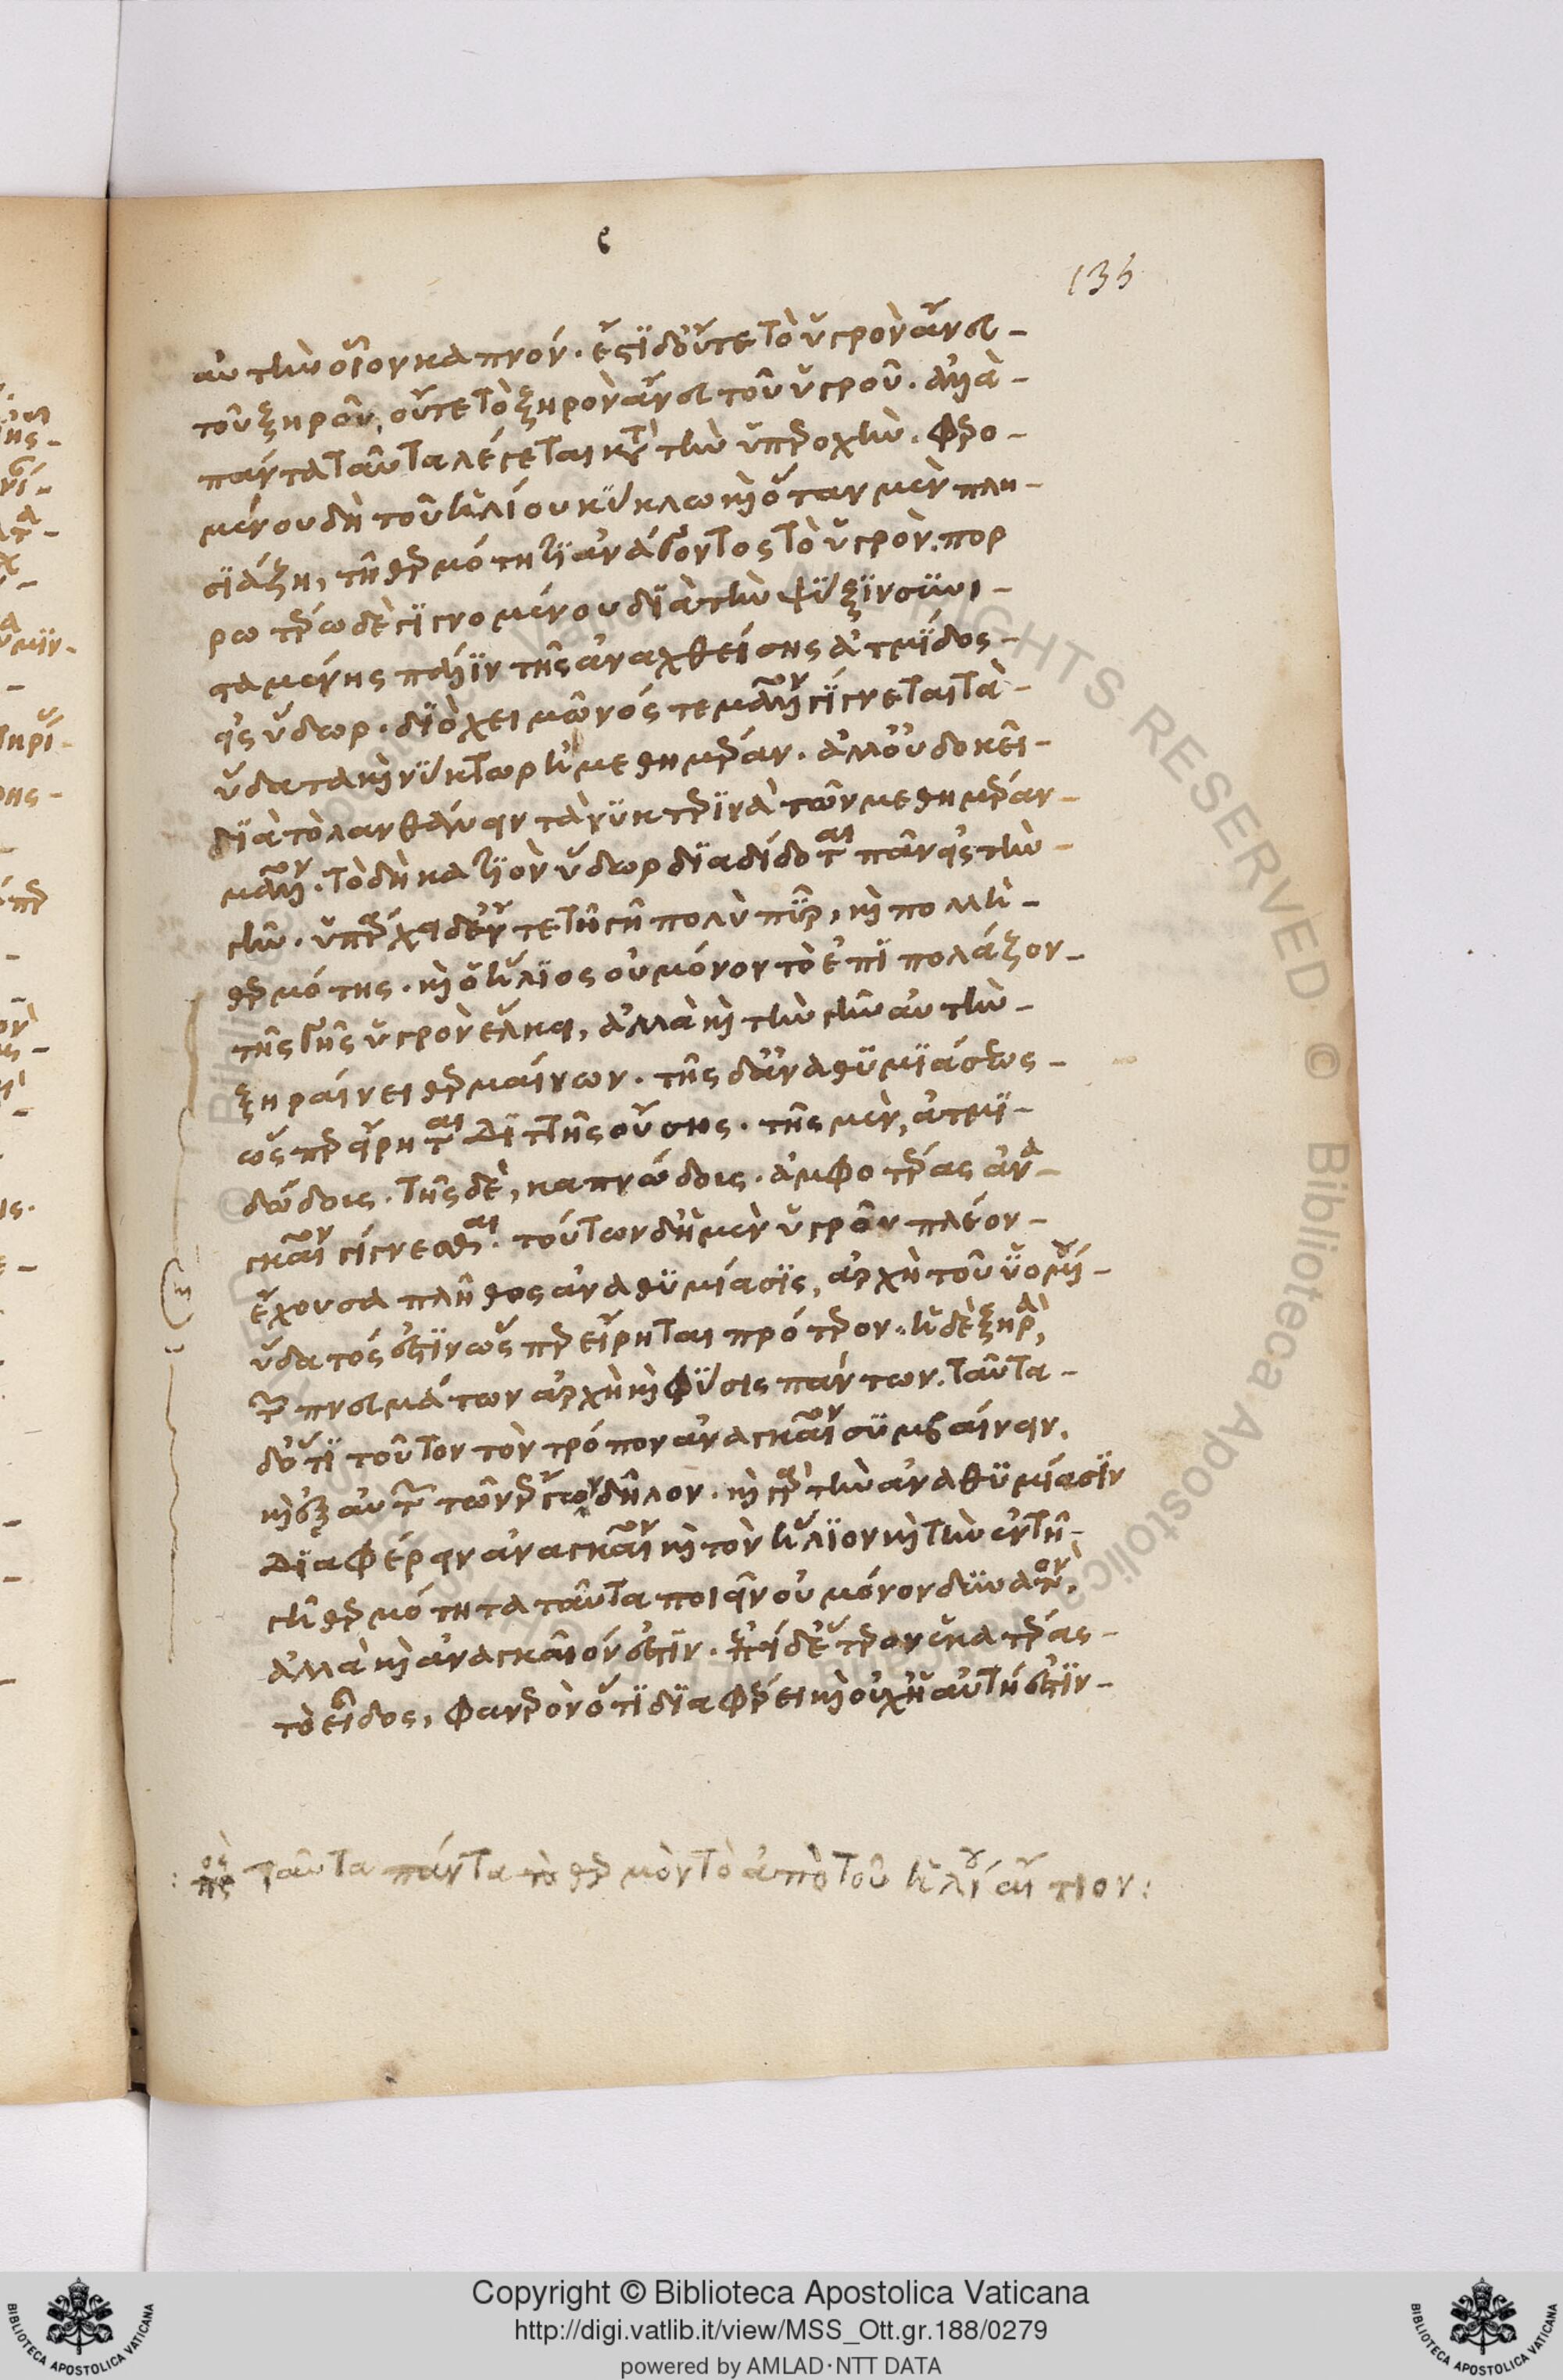 ϛ
136
αὐτὴν οἷον καπνόν. ἔστι δ' οὔτε τὸ ὑγρὸν ἄνευ -
τοῦ ξηροῦ, οὔτε τὸ ξηρὸν ἄνευ τοῦ ὑγροῦ. ἀλλὰ -
πάντα ταῦτα λέγεται κατὰ τὴν ὑπεροχήν. φερο -
μένου δὴ τοῦ ἡλίου κύκλω καὶ ὅταν μὲν πλη -
σιάζη, τῆ θερμότητι ἀνάγοντος τὸ ὑγρόν. πορ
ρωτέρω δὲ γιγνομένου διὰ τὴν ψύξιν συνι -
σταμένης πάλιν τῆς ἀναχθείσης ἀτμίδος -
εἰς ὕδωρ. διὸ χειμῶνός τε μᾶλλον γίγνεται τὰ -
ὕδατα καὶ νύκτωρ ἢ μεθημέραν. ἀλλ' οὐ δοκεῖ -
διὰ τὸ λανθάνειν τὰ νυκτερινὰ τῶν μεθημέραν -
μᾶλλον. τὸ δὴ κατιὸν ὕδωρ διαδίδοται πᾶν εἰς τὴν -
γῆν. ὑπάρχει δ' ἔν τε τῆ γῆ πολὺ πῦρ, καὶ πολλὴ -
θερμότης. καὶ ὁ ἥλιος οὐ μόνον τὸ ἐπιπολάζον -
τῆς γῆς ὑγρὸν ἕλκει, ἀλλὰ καὶ τὴν γῆν αὐτὴν -
ξηραίνει θερμαίνων. τῆς δ' ἀναθυμιάσεως -
ὥσπερ εἴρηται διττῆς οὔσης. τῆς μὲν, ἀτμι -
δώδους. τῆς δὲ, καπνώδους. ἀμφοτέρας ἀνα -
γκαῖον γίγνεσθαι. τούτων δ' ἡ μὲν ὑγροῦ πλέον -
ἔχουσα πλῆθος ἀναθυμίασις, ἀρχὴ τοῦ ὑομένου -
ὕδατός ἐστιν ὥσπερ εἴρηται πρότερον. ἡ δὲ ξηρὰ,
τῶν πνευμάτων ἀρχὴ καὶ φύσις πάντων. ταῦτα -
δ' ὅτι τοῦτον τὸν τρόπον ἀναγκαῖον συμβαίνειν.
καὶ ἐξ αὐτῶν τῶν ἔργων δῆλον. καὶ γὰρ τὴν ἀναθυμίασιν
διαφέρειν ἀναγκαῖον καὶ τὸν ἥλιον καὶ τὴν ἐν τῆ -
γῆ θερμότητα ταῦτα ποιεῖν οὐ μόνον δυνατόν,
ἀλλὰ καὶ ἀναγκαῖόν ἐστιν. ἐπεὶ δ' ἕτερον ἑκατέρας -
τὸ εἶδος, φανερὸν ὅτι διαφέρει καὶ οὐχ ἡ αὐτή ἐστιν -
πρὸς ταῦτα πάντα τὸ θερμὸν τὸ ἀπὸ τοῦ ἡλίου αἴτιον:
Copyright © Biblioteca Apostolica Vaticana
http://digi.vatlib.it/view/MSS_Ott.gr.188/0279
powered by AMLAD·NTT DATA